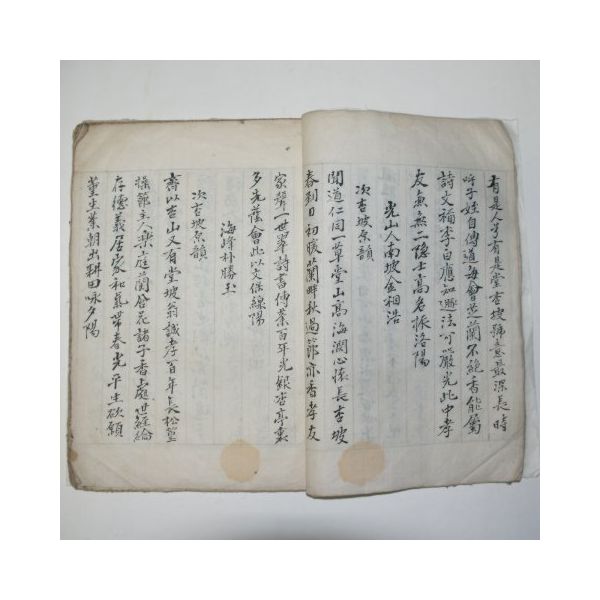 有是人亐有是堂杏坡號意最深長時
呼子姪自傳道每會芝蘭不絶香能屬
詩文稱李白應知遯法可嚴光此中孝
友無無二隱士高名振洛陽
光山人南坡金相浩
次杏坡原韻
聞道仁同一草堂山高海濶心懷長杏坡
春到日初暖蘭畔秋過節亦香孝友
家聲一世翠詩書傳業百年光銀杏亭裏
多先蔭會此以文侎線陽
海峰朴勝玉
次杏坡原韻
齊以杏山又有堂坡翁誠孝百年長松篁
操節主人樂庭蘭谷花諸子香處世經綸
存德義居家和氣帶春光平生砍願
董生業朝出耕田咏夕陽